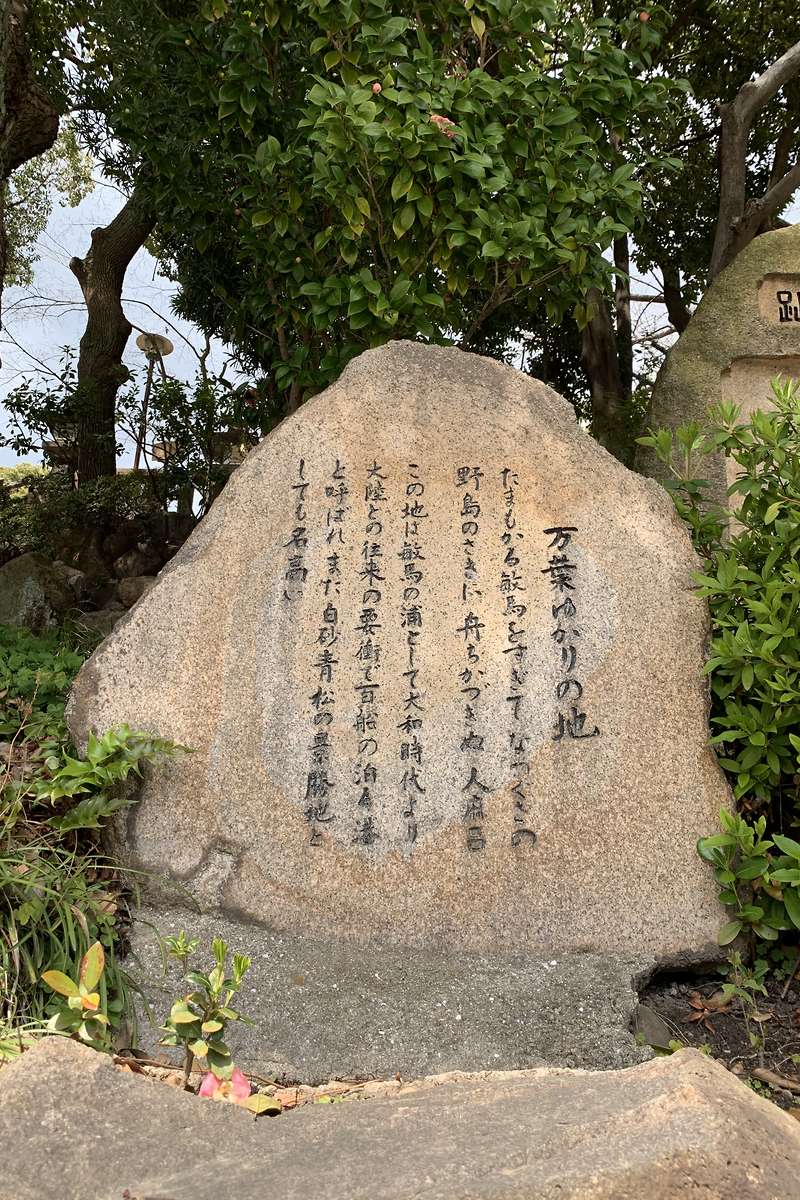 万葉ゆかりの地
たまもかる敏馬をすぎてなつくさの
野島のさきに舟ちかつきぬ 人麻呂
この地は敏馬の浦として大和時代より
大陸との往来の要衝で百船の泊る港
と呼ばれ また白砂青松の景勝地と
しても名高い